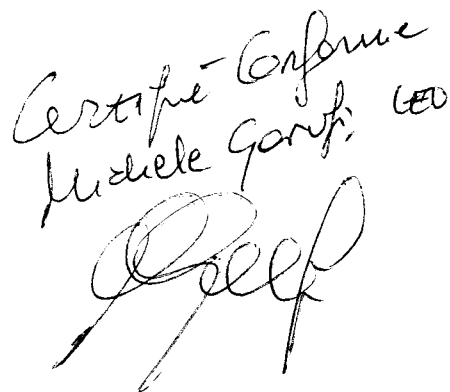 Certifié Conforme
Michele Garufi, CEO